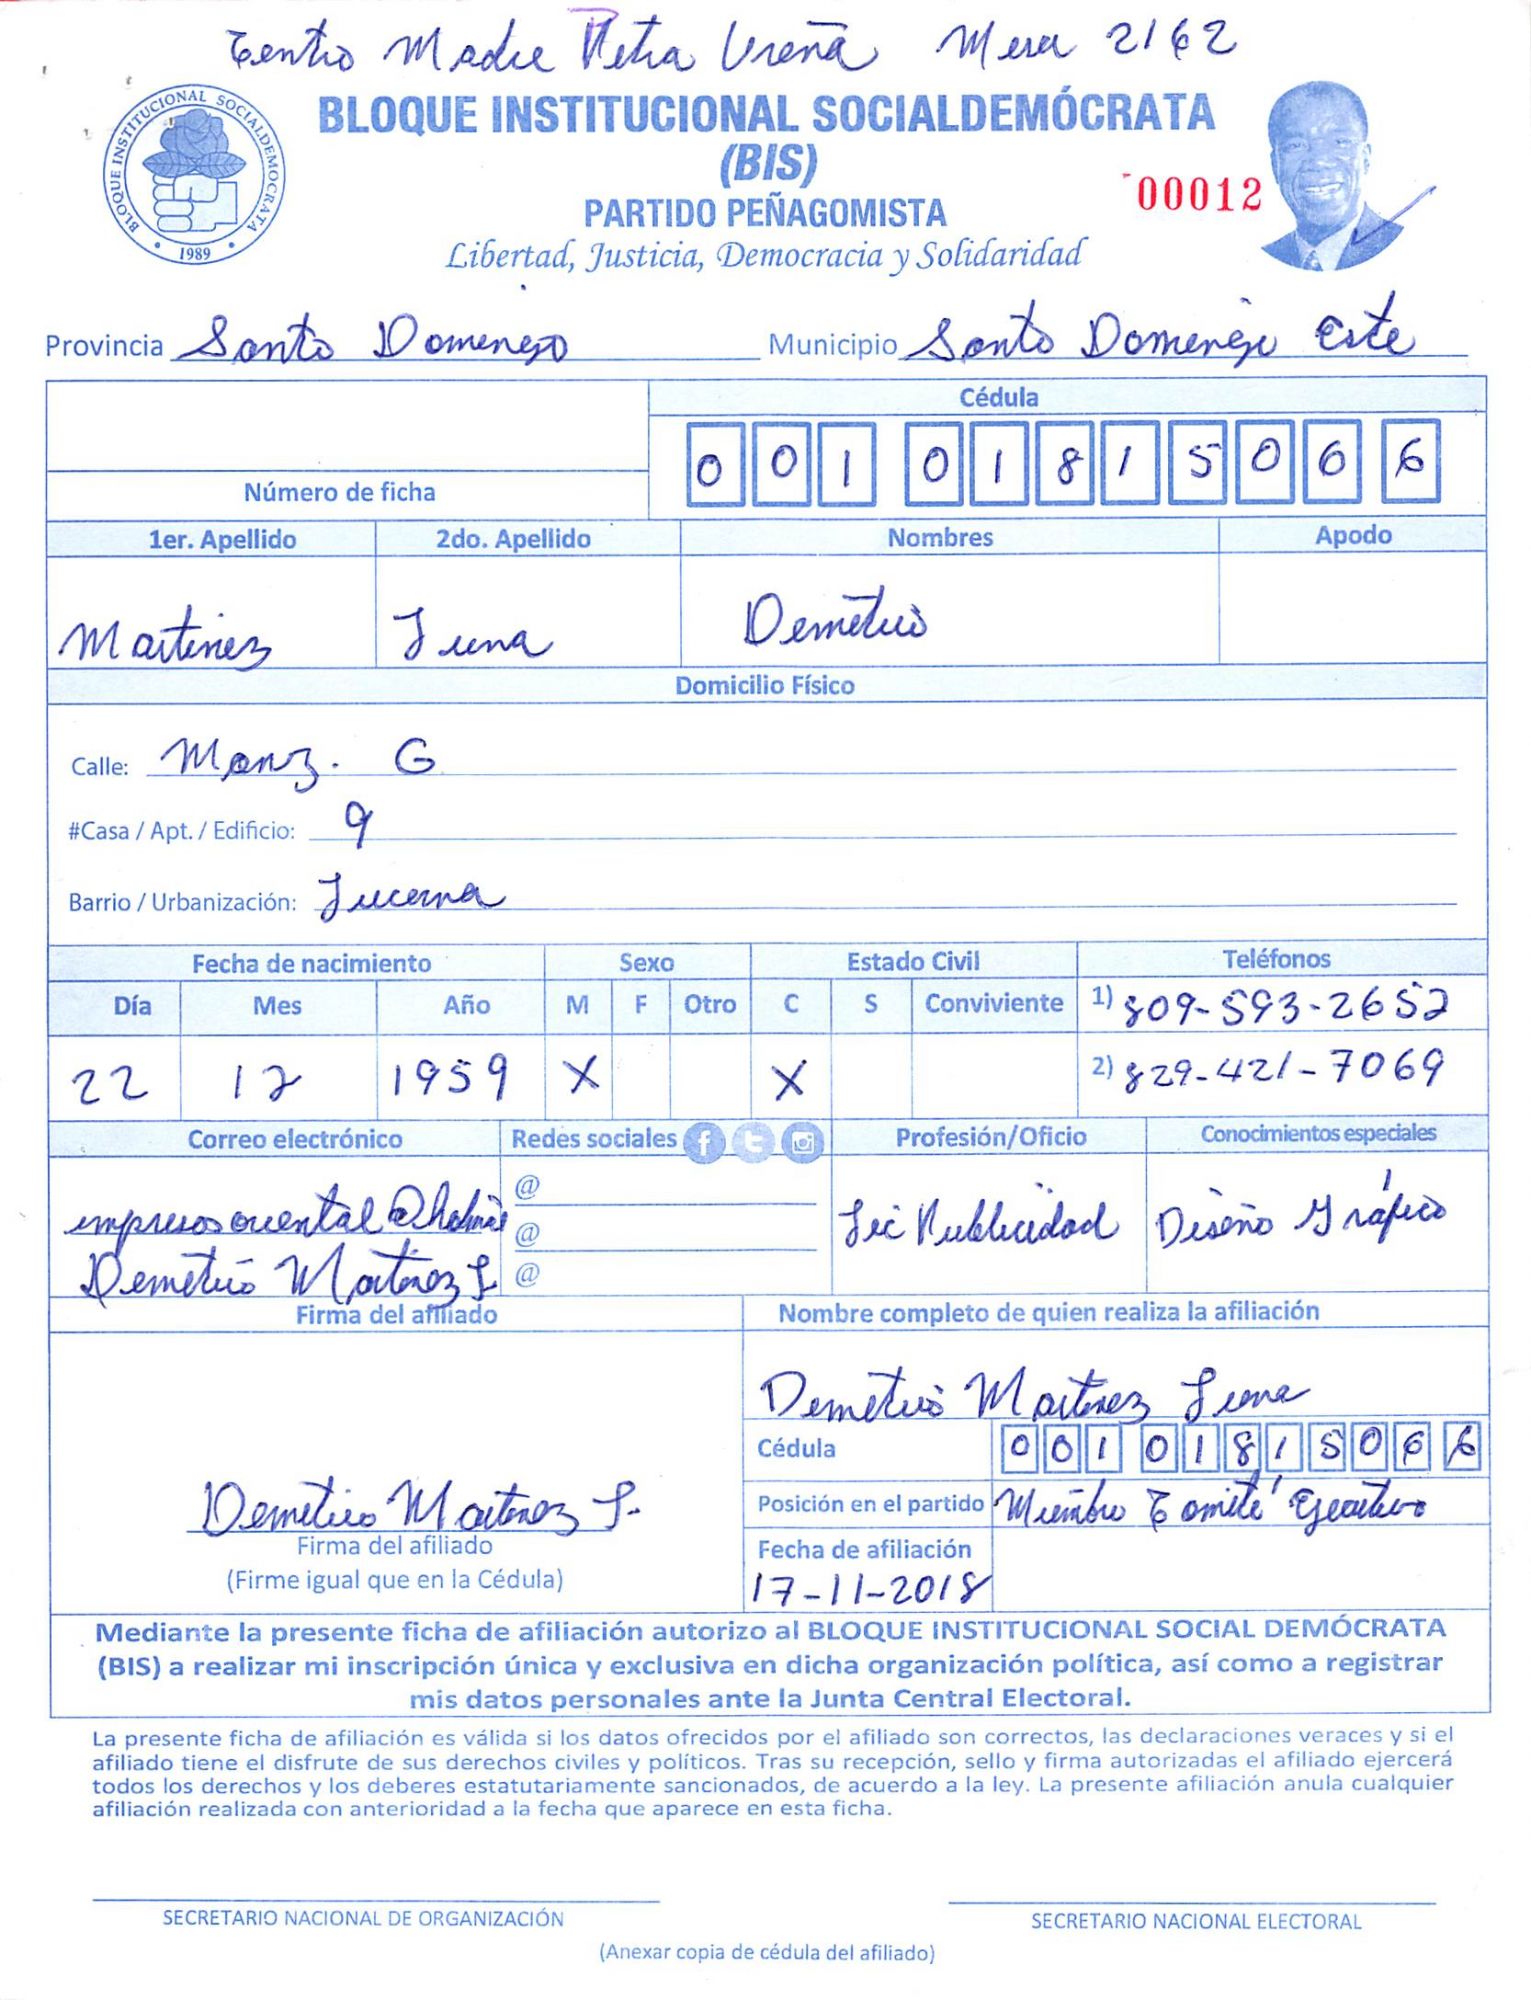 Centro Madre Petra Ureña Mesa 2162
BLOQUE INSTITUCIONAL SOCIALDEMÓCRATA
(BIS)
PARTIDO PEÑAGOMISTA
Libertad, Justicia, Democracia y Solidaridad
BLOQUE INSTITUCIONAL SOCIALDEMOCRATA
1989
00012
Provincia Santo Domingo Municipio Santo Domingo Este
Cédula
0 0 1 0 1 8 1 5 0 6 6
Número de ficha
1er. Apellido 2do. Apellido Nombres Apodo
Martinez Luna Demetrio
Domicilio Físico
Calle: Manz. G
#Casa / Apt. / Edificio: 9
Barrio / Urbanización: Lucerna
Fecha de nacimiento Sexo Estado Civil Teléfonos
Día Mes Año M F Otro C S Conviviente 1) 809-593-2652
22 12 1959 X X 2) 829-421-7069
Correo electrónico Redes sociales Profesión/Oficio Conocimientos especiales
impresosoriental@ @ Lic Publicidad Diseño Gráfico
@
Demetrio Martinez L @
Firma del afiliado Nombre completo de quien realiza la afiliación
Demetrio Martinez Luna
Cédula 0 0 1 0 1 8 1 5 0 6 6
Demetrio Martinez L. Posición en el partido Miembro Comité Ejecutivo
Firma del afiliado Fecha de afiliación
(Firme igual que en la Cédula) 17-11-2018
Mediante la presente ficha de afiliación autorizo al BLOQUE INSTITUCIONAL SOCIAL DEMÓCRATA
(BIS) a realizar mi inscripción única y exclusiva en dicha organización política, así como a registrar
mis datos personales ante la Junta Central Electoral.
La presente ficha de afiliación es válida si los datos ofrecidos por el afiliado son correctos, las declaraciones veraces y si el
afiliado tiene el disfrute de sus derechos civiles y políticos. Tras su recepción, sello y firma autorizadas el afiliado ejercerá
todos los derechos y los deberes estatutariamente sancionados, de acuerdo a la ley. La presente afiliación anula cualquier
afiliación realizada con anterioridad a la fecha que aparece en esta ficha.
SECRETARIO NACIONAL DE ORGANIZACIÓN SECRETARIO NACIONAL ELECTORAL
(Anexar copia de cédula del afiliado)